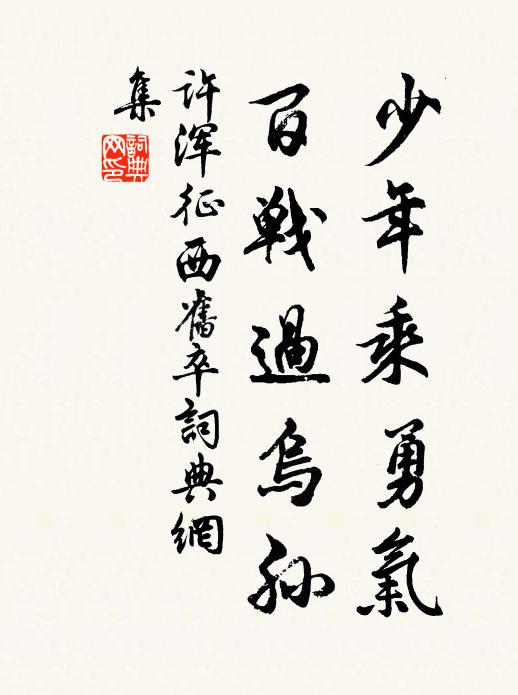 少年乘勇氣
百戰過烏孫
許渾征西舊卒詞典網
集
詞典網印